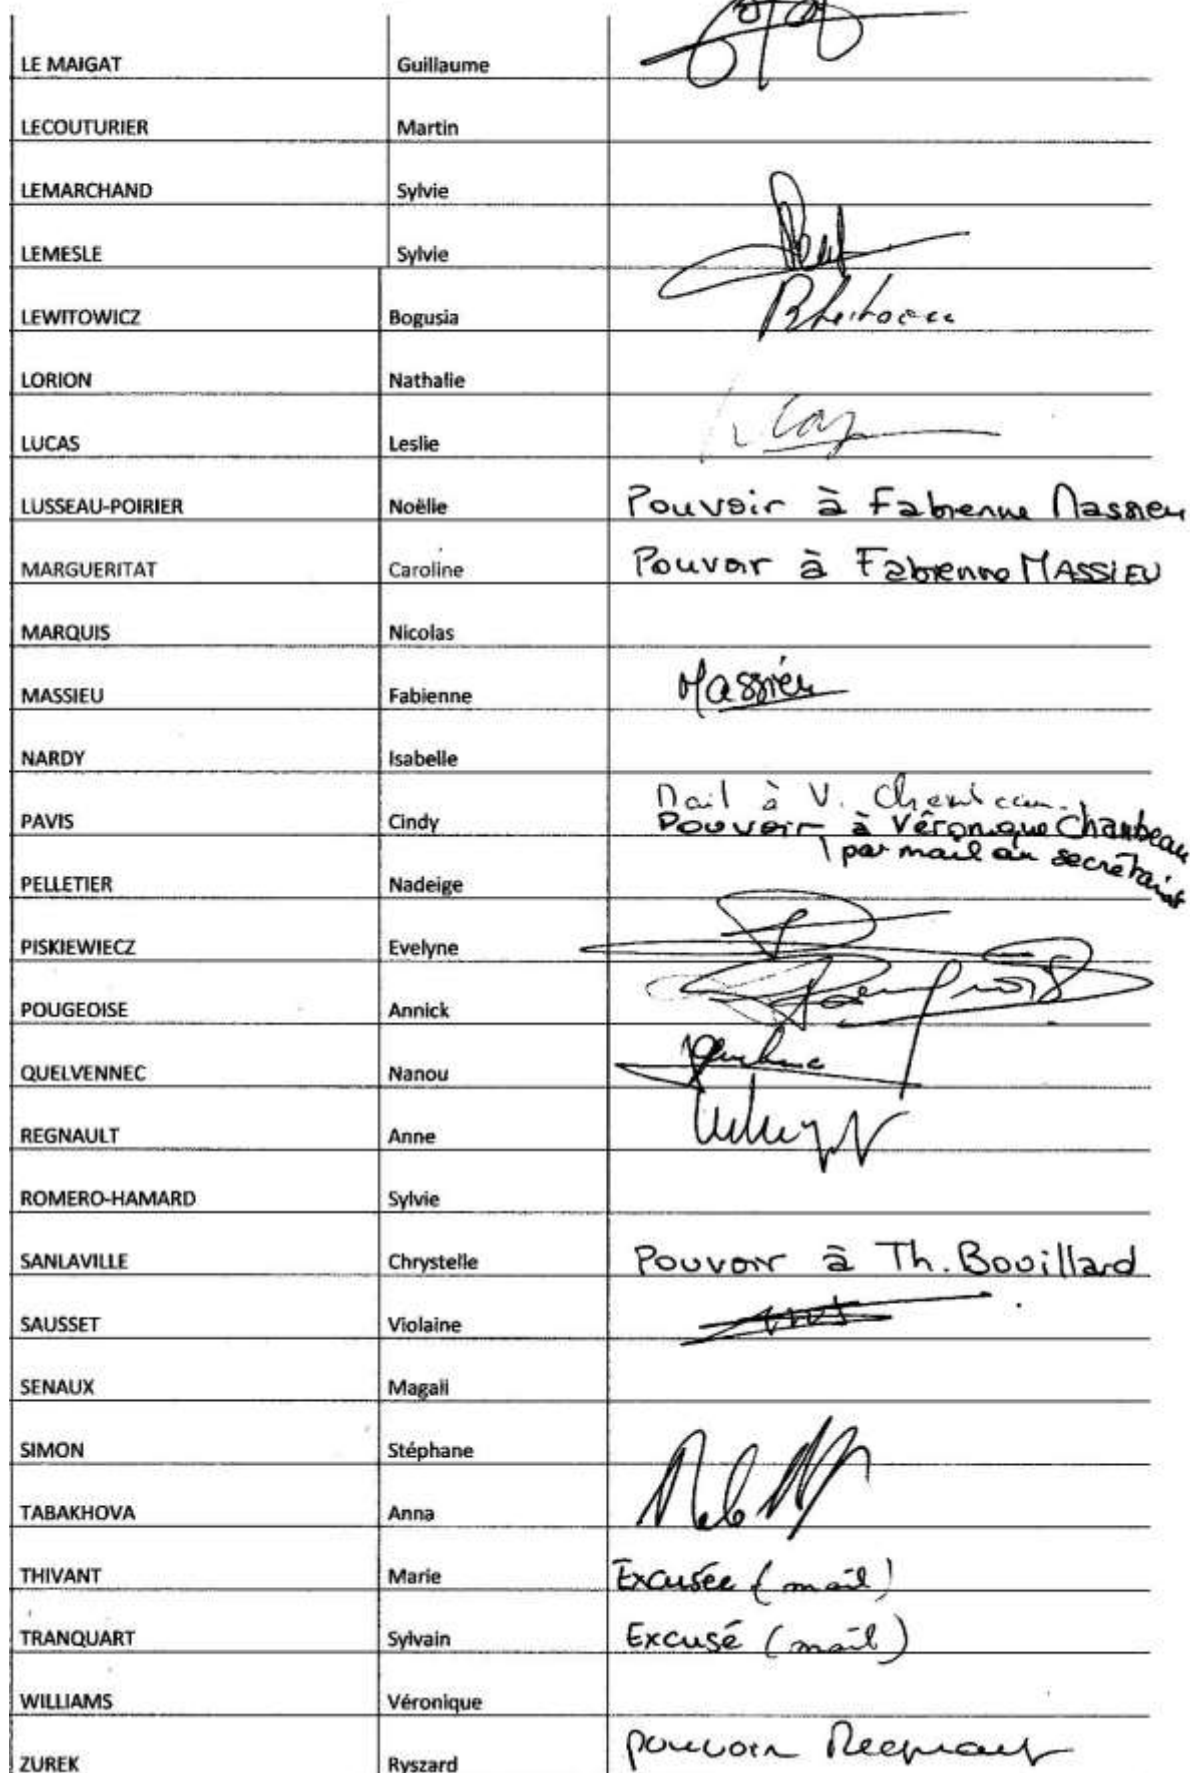 LE MAIGAT Guillaume
LECOUTURIER Martin
LEMARCHAND Sylvie
LEMESLE Sylvie
LEWITOWICZ Bogusia
LORION Nathalie
LUCAS Leslie
LUSSEAU-POIRIER Noëlle Pouvoir à Fabienne Massieu
MARGUERITAT Caroline Pouvoir à Fabienne MASSIEU
MARQUIS Nicolas
MASSIEU Fabienne Massieu
NARDY Isabelle
Mail à V. Chambeau
PAVIS Cindy Pouvoir à Véronique Chambeau
par mail au secrétariat
PELLETIER Nadeige
PISKIEWIECZ Evelyne
POUGEOISE Annick
QUELVENNEC Nanou
REGNAULT Anne
ROMERO-HAMARD Sylvie
SANLAVILLE Chrystelle Pouvoir à Th. Bouillard
SAUSSET Violaine
SENAUX Magali
SIMON Stéphane
TABAKHOVA Anna
THIVANT Marie Excusée (mail)
TRANQUART Sylvain Excusé (mail)
WILLIAMS Véronique
ZUREK Ryszard pouvoir Regnault